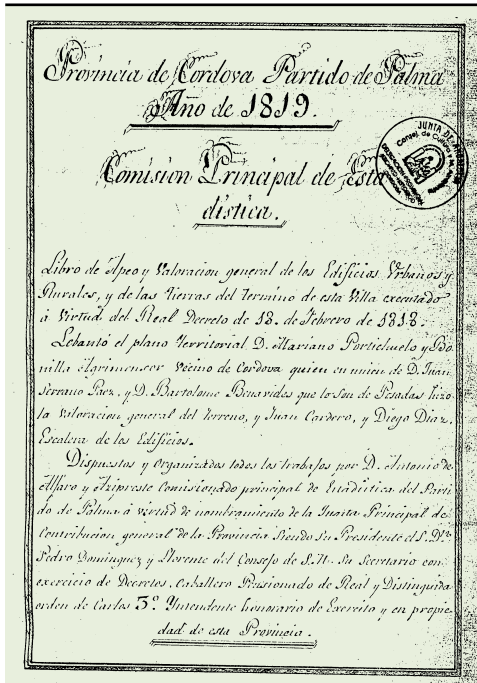 Provincia de Cordova Partido de Palma
Año de 1819.
Comision Principal de Esta
distica.
JUNTA DE
Libro de Apeo y Valoracion general de los Edificios Vrbanos y
Rurales, y de las tierras del termino de esta Villa executado
à Virtud del Real Decreto de 18. de Febrero de 1818.
Lebantó el plano territorial D. Mariano Portichuelo y Bo
nilla Agrimensor Vecino de Cordova quien en union de D. Juan
Serrano Paez, y D. Bartolome Benavides que lo son de Posadas hizo
la Valoracion general del terreno, y Juan Cordero, y Diego Diaz
Escalera de los Edificios.
Dispuestos y Organizados todos los trabajos por D. Antonio de
Alfaro y Azipreste Comisionado principal de Estadistica del Parti
do de Palma à virtud de nombramiento de la Junta Principal de
Contribucion general de la Provincia siendo su Presidente el S. Dn
Pedro Dominguez y Llorente del Consejo de S. M. Su Secretario con
exercicio de Decretos, Caballero Pensionado de Real y Distinguida
orden de Carlos 3º Yntendente honorario de Exercito y en propie-
dad de esta Provincia.